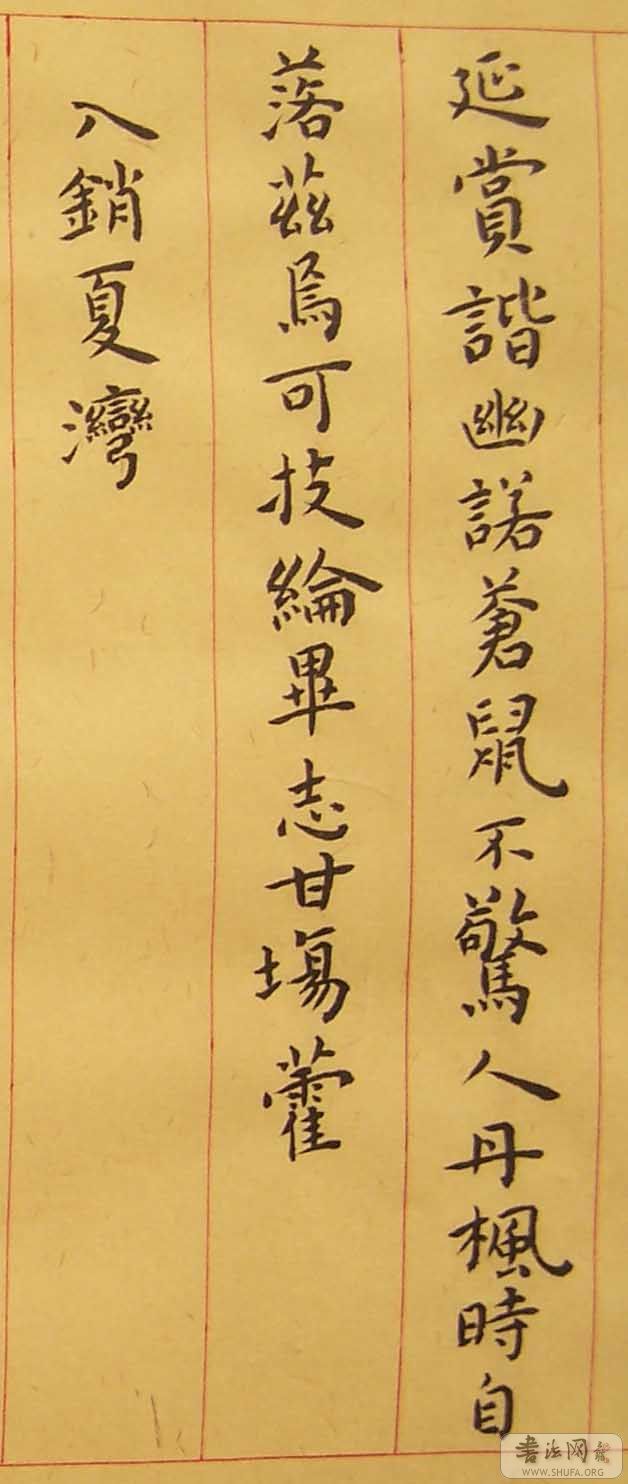 延賞諧幽諾蒼鼠不驚人丹楓時自
落茲焉可技綸畢志甘場藿
入銷夏灣
書法网
WWW.SHUFA.ORG